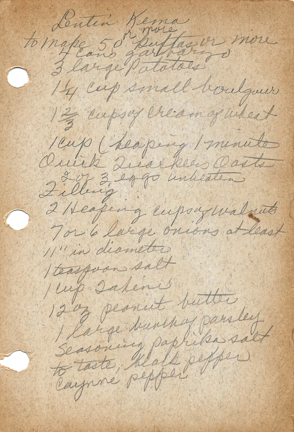 Lenten Kema
or more
to make 50 Kuftas or more
4 cans garbanzo
3 large Potatoes
1 1/4 cup small bourlgour
1 2/3 cups of cream of wheat
1 cup (heaping 1 minute
Quick Quacker Oasts
2 or 3 eggs unbeaten
Filling
2 Heaping cups of walnuts
7 or 6 large onions at least
11" in diameter
1 teaspoon salt
1 cup Tahene
12 oz peanut butter
1 large bunthey parsley
Seasoning paprika salt
to taste, black pepper
Caynne pepper